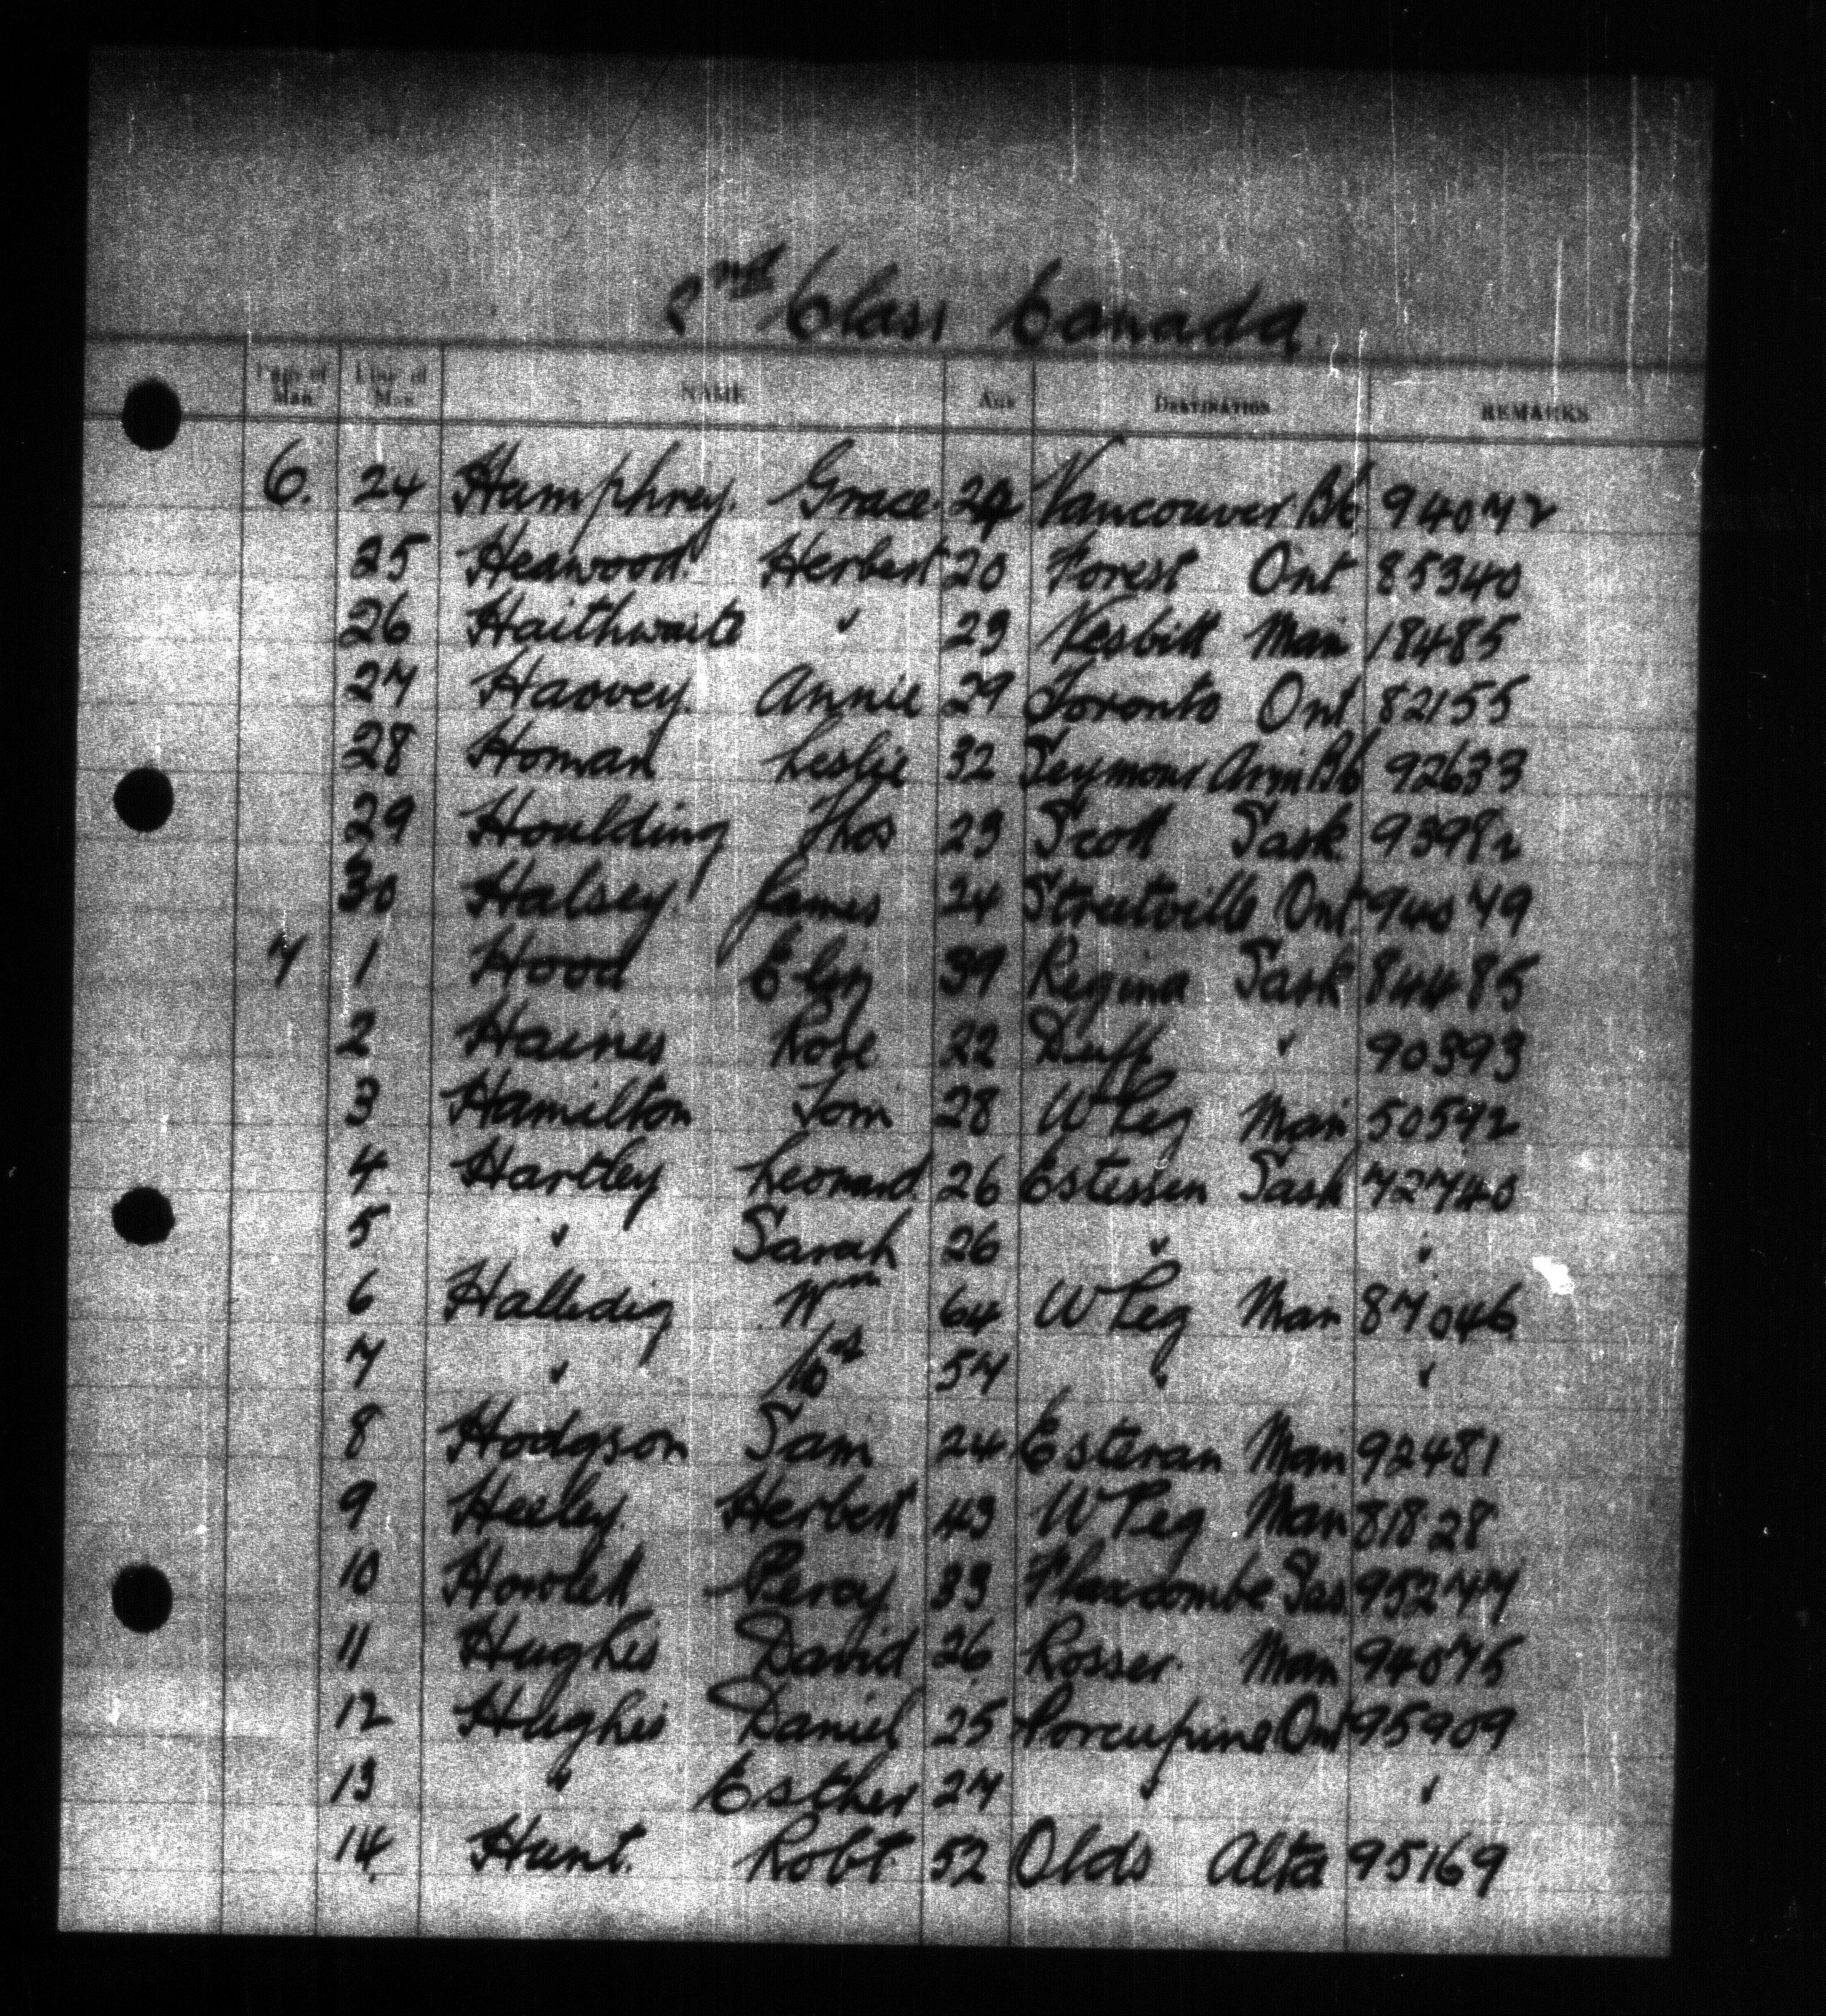 2nd Class Canada.
Page of Man. Line of Man. NAME AGE DESTINATION REMARKS
6. 24 Humphrey. Grace. 24 Vancouver BC 94072
25 Heawood. Herbert 20 Forest Ont 85340
26 Haithwaite " 23 Nesbitt Man 18485
27 Harvey. Annie 29 Toronto Ont 82155
28 Homan Leslie 32 Seymour Arm BC 92633
29 Houlding Thos 23 Scott Sask 93982
30 Halsey James 24 Streetville Ont 94079
7 1 Hood Eliz 39 Regina Sask 84485
2 Haines Rose 22 Duff " 90393
3 Hamilton Tom 28 W Peg Man 50592
4 Hartley Leonard 26 Sask 72740
5 " Sarah 26 " "
6 Halledig Wm 64 W Peg Man 87046
7 " 57 " "
8 Hodgson Sam 24 Estevan Man 92481
9 Heeley. Herbert 43 W Peg Man 81828
10 Howlett Percy 33 Flaxcombe Sas 95277
11 Hughes David 26 Rosser Man 94075
12 Hughes Daniel 25 Porcupine Ont 95909
13 " Esther 27 " "
14 Hunt. Robt. 52 Olds Alta 95169